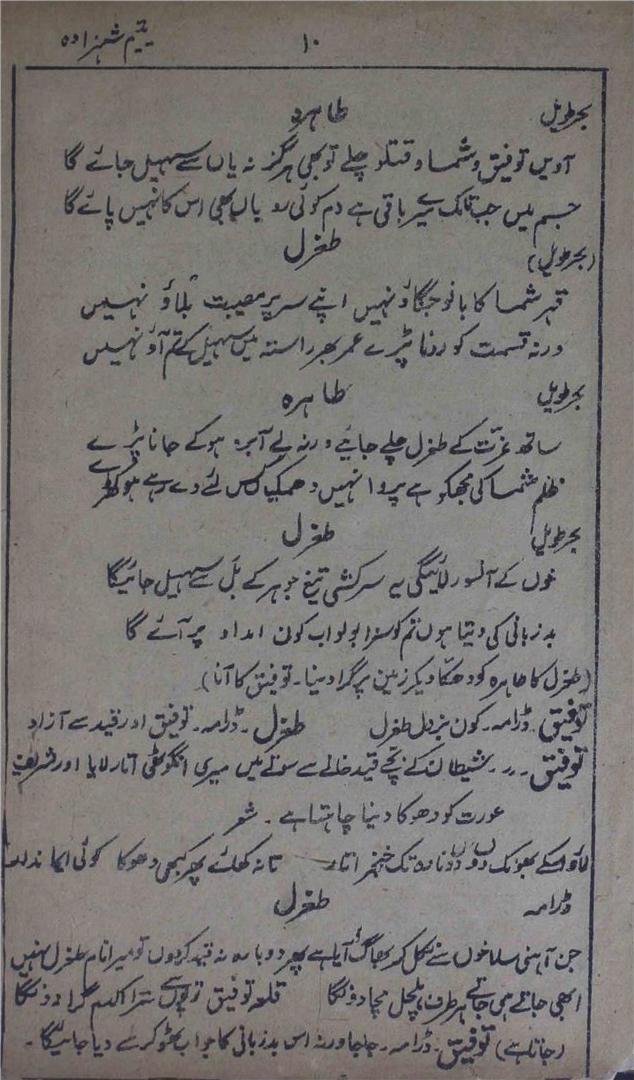 یتیم شہزادہ ۱۰
بحر طویل طاہرہ
آویں توفیق و شما و قتلو چلے تو بھی ہرگز نہ یاں سے سہیل جائے گا
جسم میں جب تلک میرے باقی ہے دم کوئی رویاں بھی اس کا نہیں پائے گا
(بحر طویل) طغرل
قہر شما کا بانو جگاؤ نہیں اپنے سر پر مصیبت بلاؤ نہیں
ورنہ قسمت کو رونا پڑے عمر بھر راستہ میں سہیل کے تم آؤ نہیں
بحر طویل طاہرہ
ساتھ عزت کے طغرل چلے جائیے ورنہ بے آبرو ہو کے جانا پڑے
ظلم شما کی مجھکو ہے پروا نہیں دھمکیاں کس لئے دے رہے ہو کھڑے
بحر طویل طغرل
خوں کے آنسو رلائیگی یہ سرکشی تیغ جوہر کے بل سے سہیل جائیگا
بد زبانی کی دیتا ہوں تم کو سزا بولو اب کون امداد پر آئے گا
(طغرل کا طاہرہ کو دھکا دیکر زمین پر گرا دینا۔ توفیق کا آنا)
توفیق۔ ڈرامہ۔ کون بزدل طغرل طغرل۔ ڈرامہ۔ توفیق اور قید سے آزاد
توفیق۔ ۔ ۔ شیطان کے بچے قید خانے سے سوتے میں میری انگوٹھی اتار لایا اور شریف
عورت کو دھوکا دینا چاہتا ہے۔ شعر
بھونک دوں تک خنجر اتار تا نہ کھائے پھر کبھی دھوکا کوئی ایماندار
ڈرامہ طغرل
جن آہنی سلاخوں سے نکل کر بھاگ آیا ہے پھر دوبارہ نہ قید کردوں تو میرا نام طغرل نہیں
ابھی جاتے ہی جاتے ہر طرف ہلچل مچا دونگا قلعہ توفیق توپوں سے ترا اکدم گرا دونگا
(جاتا ہے) توفیق۔ ڈرامہ۔ جا جا ورنہ اس بد زبانی کا جواب ٹھوکر سے دیا جائیگا۔